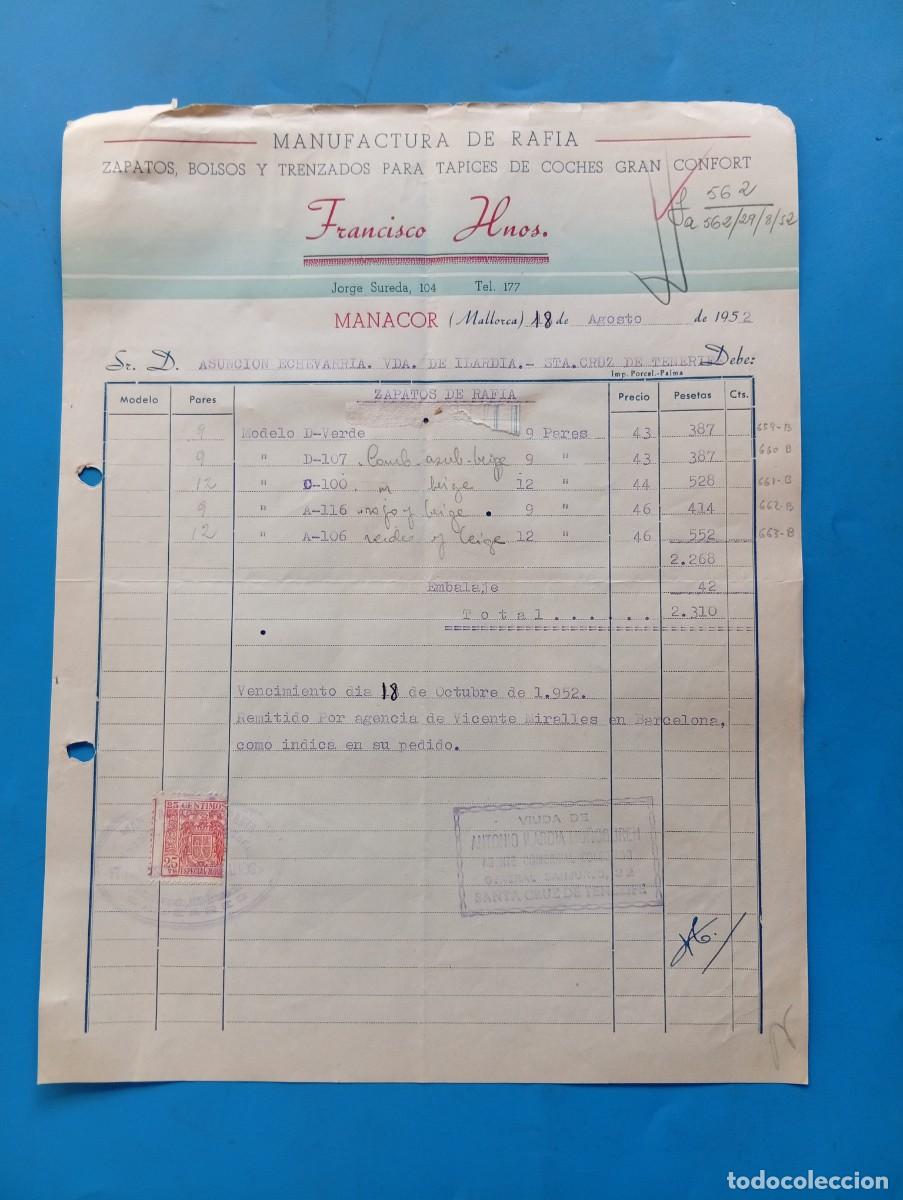 MANUFACTURA DE RAFIA
ZAPATOS, BOLSOS Y TRENZADOS PARA TAPICES DE COCHES GRAN CONFORT
Francisco Hnos.
562
a 562/29/8/52
Jorge Sureda, 104 Tel. 177
MANACOR (Mallorca) 18 de Agosto de 1952
Sr. D. ASUNCION ECHEVARRIA. VDA. DE ILARDIA.- STA. CRUZ DE TENERIFE Debe:
Imp. Porcel.-Palma
Modelo Pares Precio Pesetas Cts.
ZAPATOS DE RAFIA
9 Modelo D-Verde 9 Pares 43 387 659-B
9 " D-107 Comb. asul-beige 9 " 43 387 660 B
12 " C-100 beige 12 " 44 528 661-B
9 " A-116 rojo y beige 9 " 46 414 662-B
12 " A-106 y beige 12 " 46 552 663-B
2.268
Embalaje 42
Total...... 2.310
Vencimiento dia 18 de Octubre de 1.952.
Remitido Por agencia de Vicente Miralles en Barcelona,
como indica en su pedido.
25 CENTIMOS
25
ESPECIAL MOVIL
VIUDA DE
ANTONIO ILARDIA
AGENTE COMERCIAL
GENERAL SANJURJO, 32
SANTA CRUZ DE TENERIFE
todocoleccion